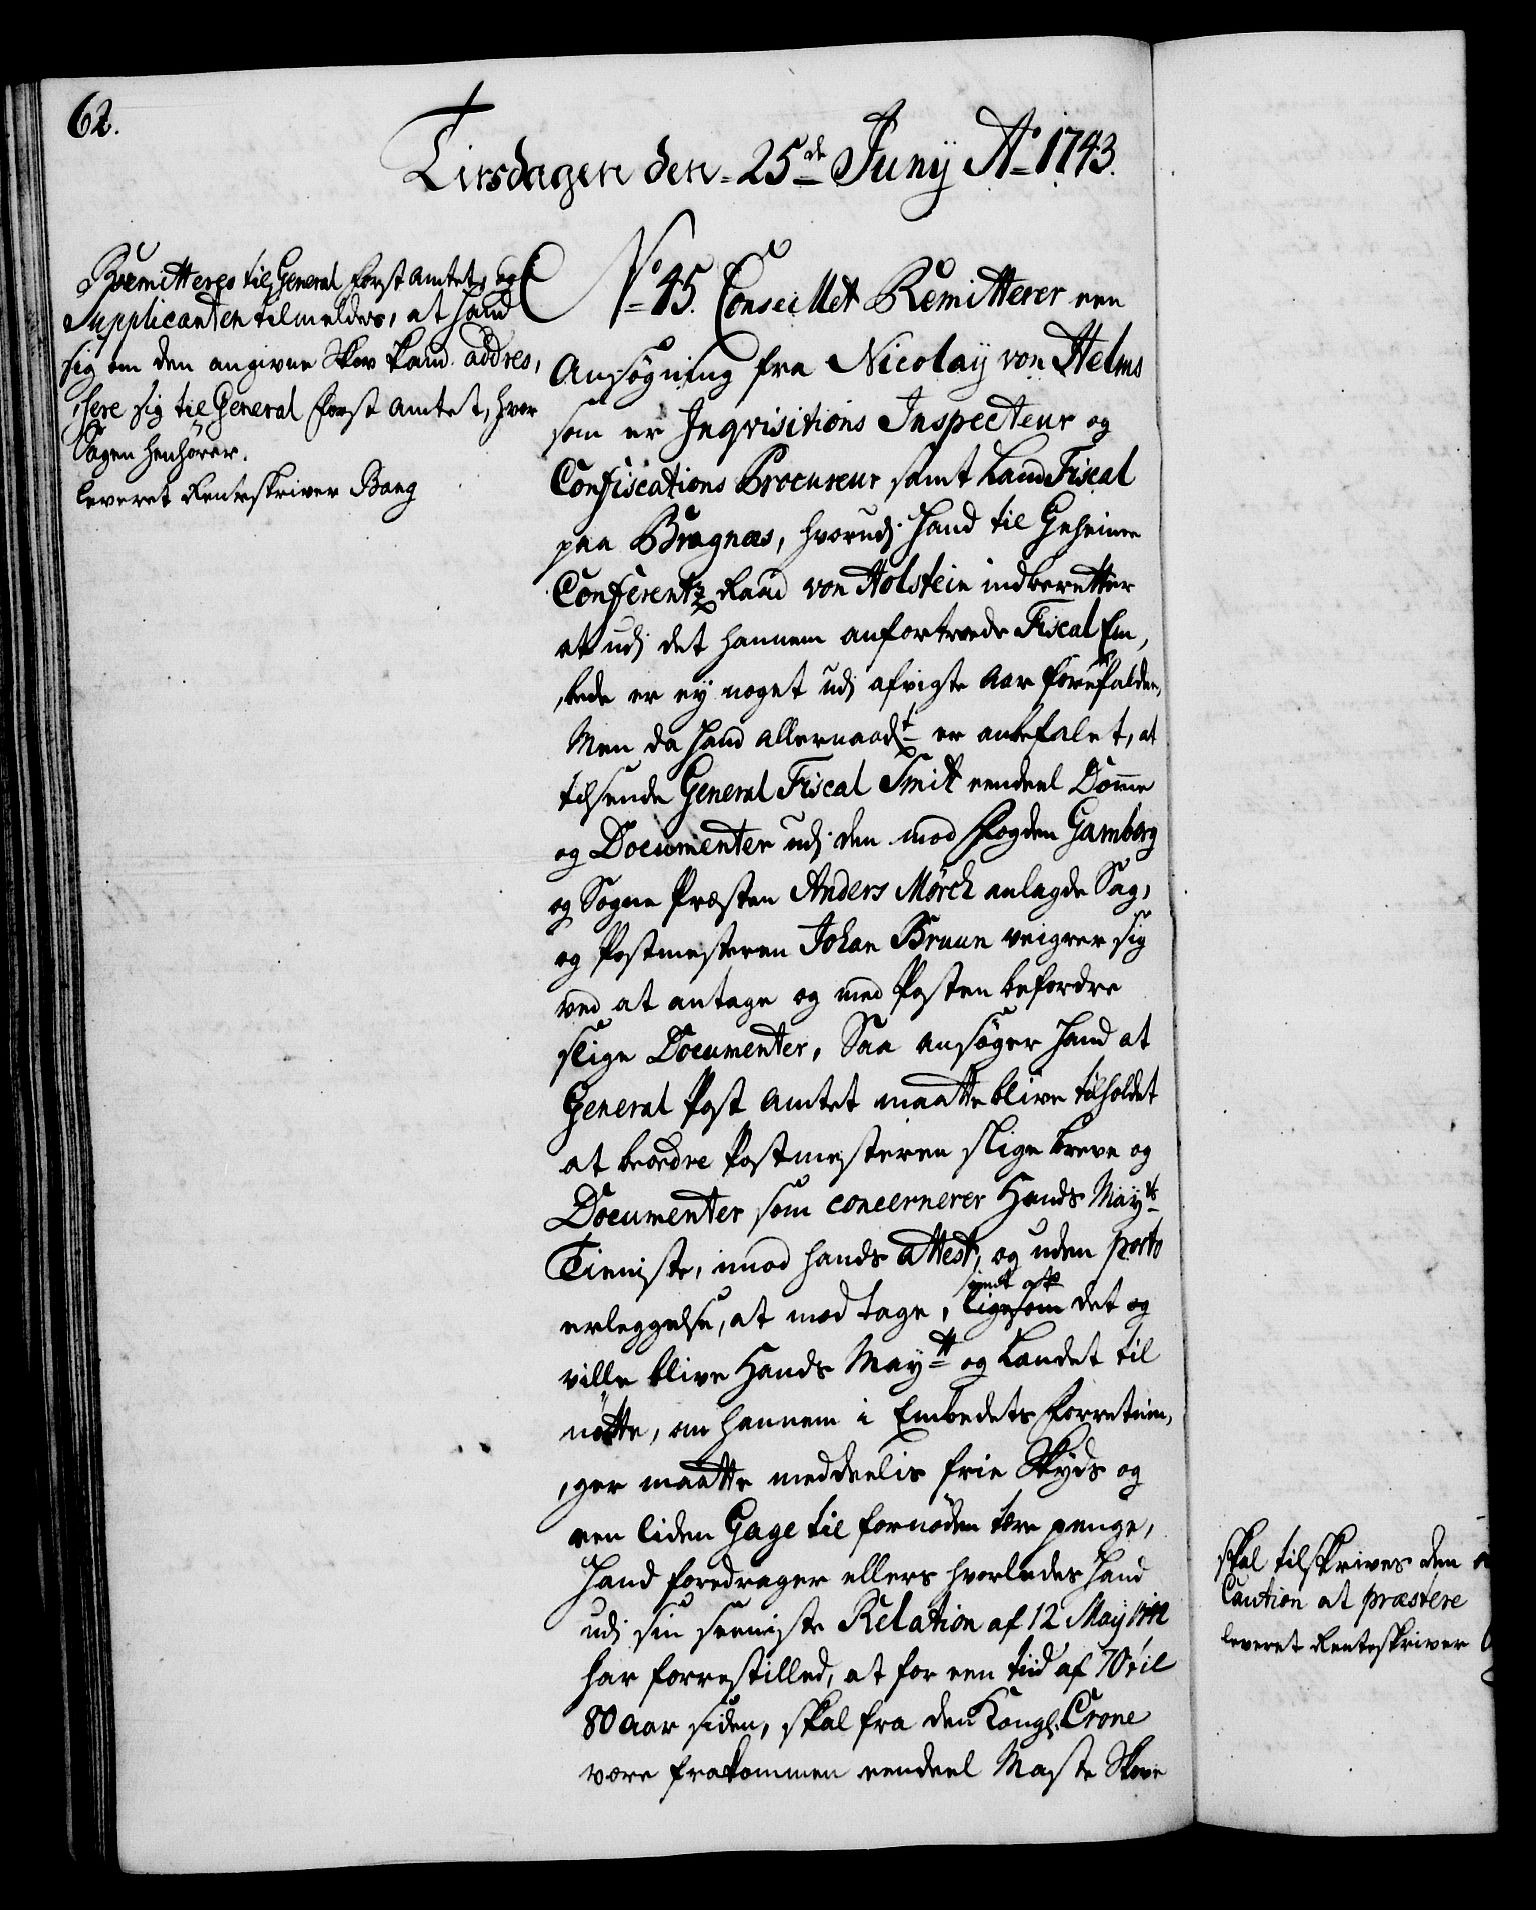 62.
Tirsdagen den 25de Junij Ao 1743.
Remitteres til General Forst Amtet, og
Supplicanten tilmeldes, at hand
sig om den angivne Skov kand addres,
,sere sig til General Forst Amtet, hvor
Sagen henhører.
leveret Renteskriver Bang
No 45. Conseillet Remitterer een
Ansøgning fra Nicolaij von Helms
som er Inqvisitions Inspecteur og
Confiscations Procureur samt Land Fiscal
paa Bragnæs, hvorudj hand til Geheime
Conferentz Raad von Holstein indberetter
at udj det hannem anfortroede Fiscal Em,
,bede er ej noget udj afvigte Aar forefalden,
Men da hand allernaadt er anbefalet, at
tilsende General Fiscal Smit eendeel Domme
og Documenter udj den mod Fogden Gamborg
og Sogne Præsten Anders Mörch anlagde Sag,
og Postmesteren Johan Bruun veigrer sig
ved at antage og med Posten befordre
slige Documenter, Saa ansøger hand at
General Post Amtet maatte blive tilholdet
at beordre Postmesteren slige breve og
Documenter som concernerer Hands Mayts
Tieniste, imod hands attest, og uden porto
erleggelse, at mod tage, ligesom det og
ville blive Hands Maytt og Landet til
nøtte, om hannem i Embedets Forretnin,
,ger maatte meddeelis frie Skyds og
een liden Gage til fornøden tære penge,
Hand foredrager ellers hvorledes hand
udj sin seeniste Relation af 12 Maij 1742
har forrestilled, at for een tiid af 70 til
80 Aar siden, skal fra den Kongl. Crone
være frakommen eendeel Maste Skove
skal tilskrives den
Caution at præstere
leveret Renteskriver